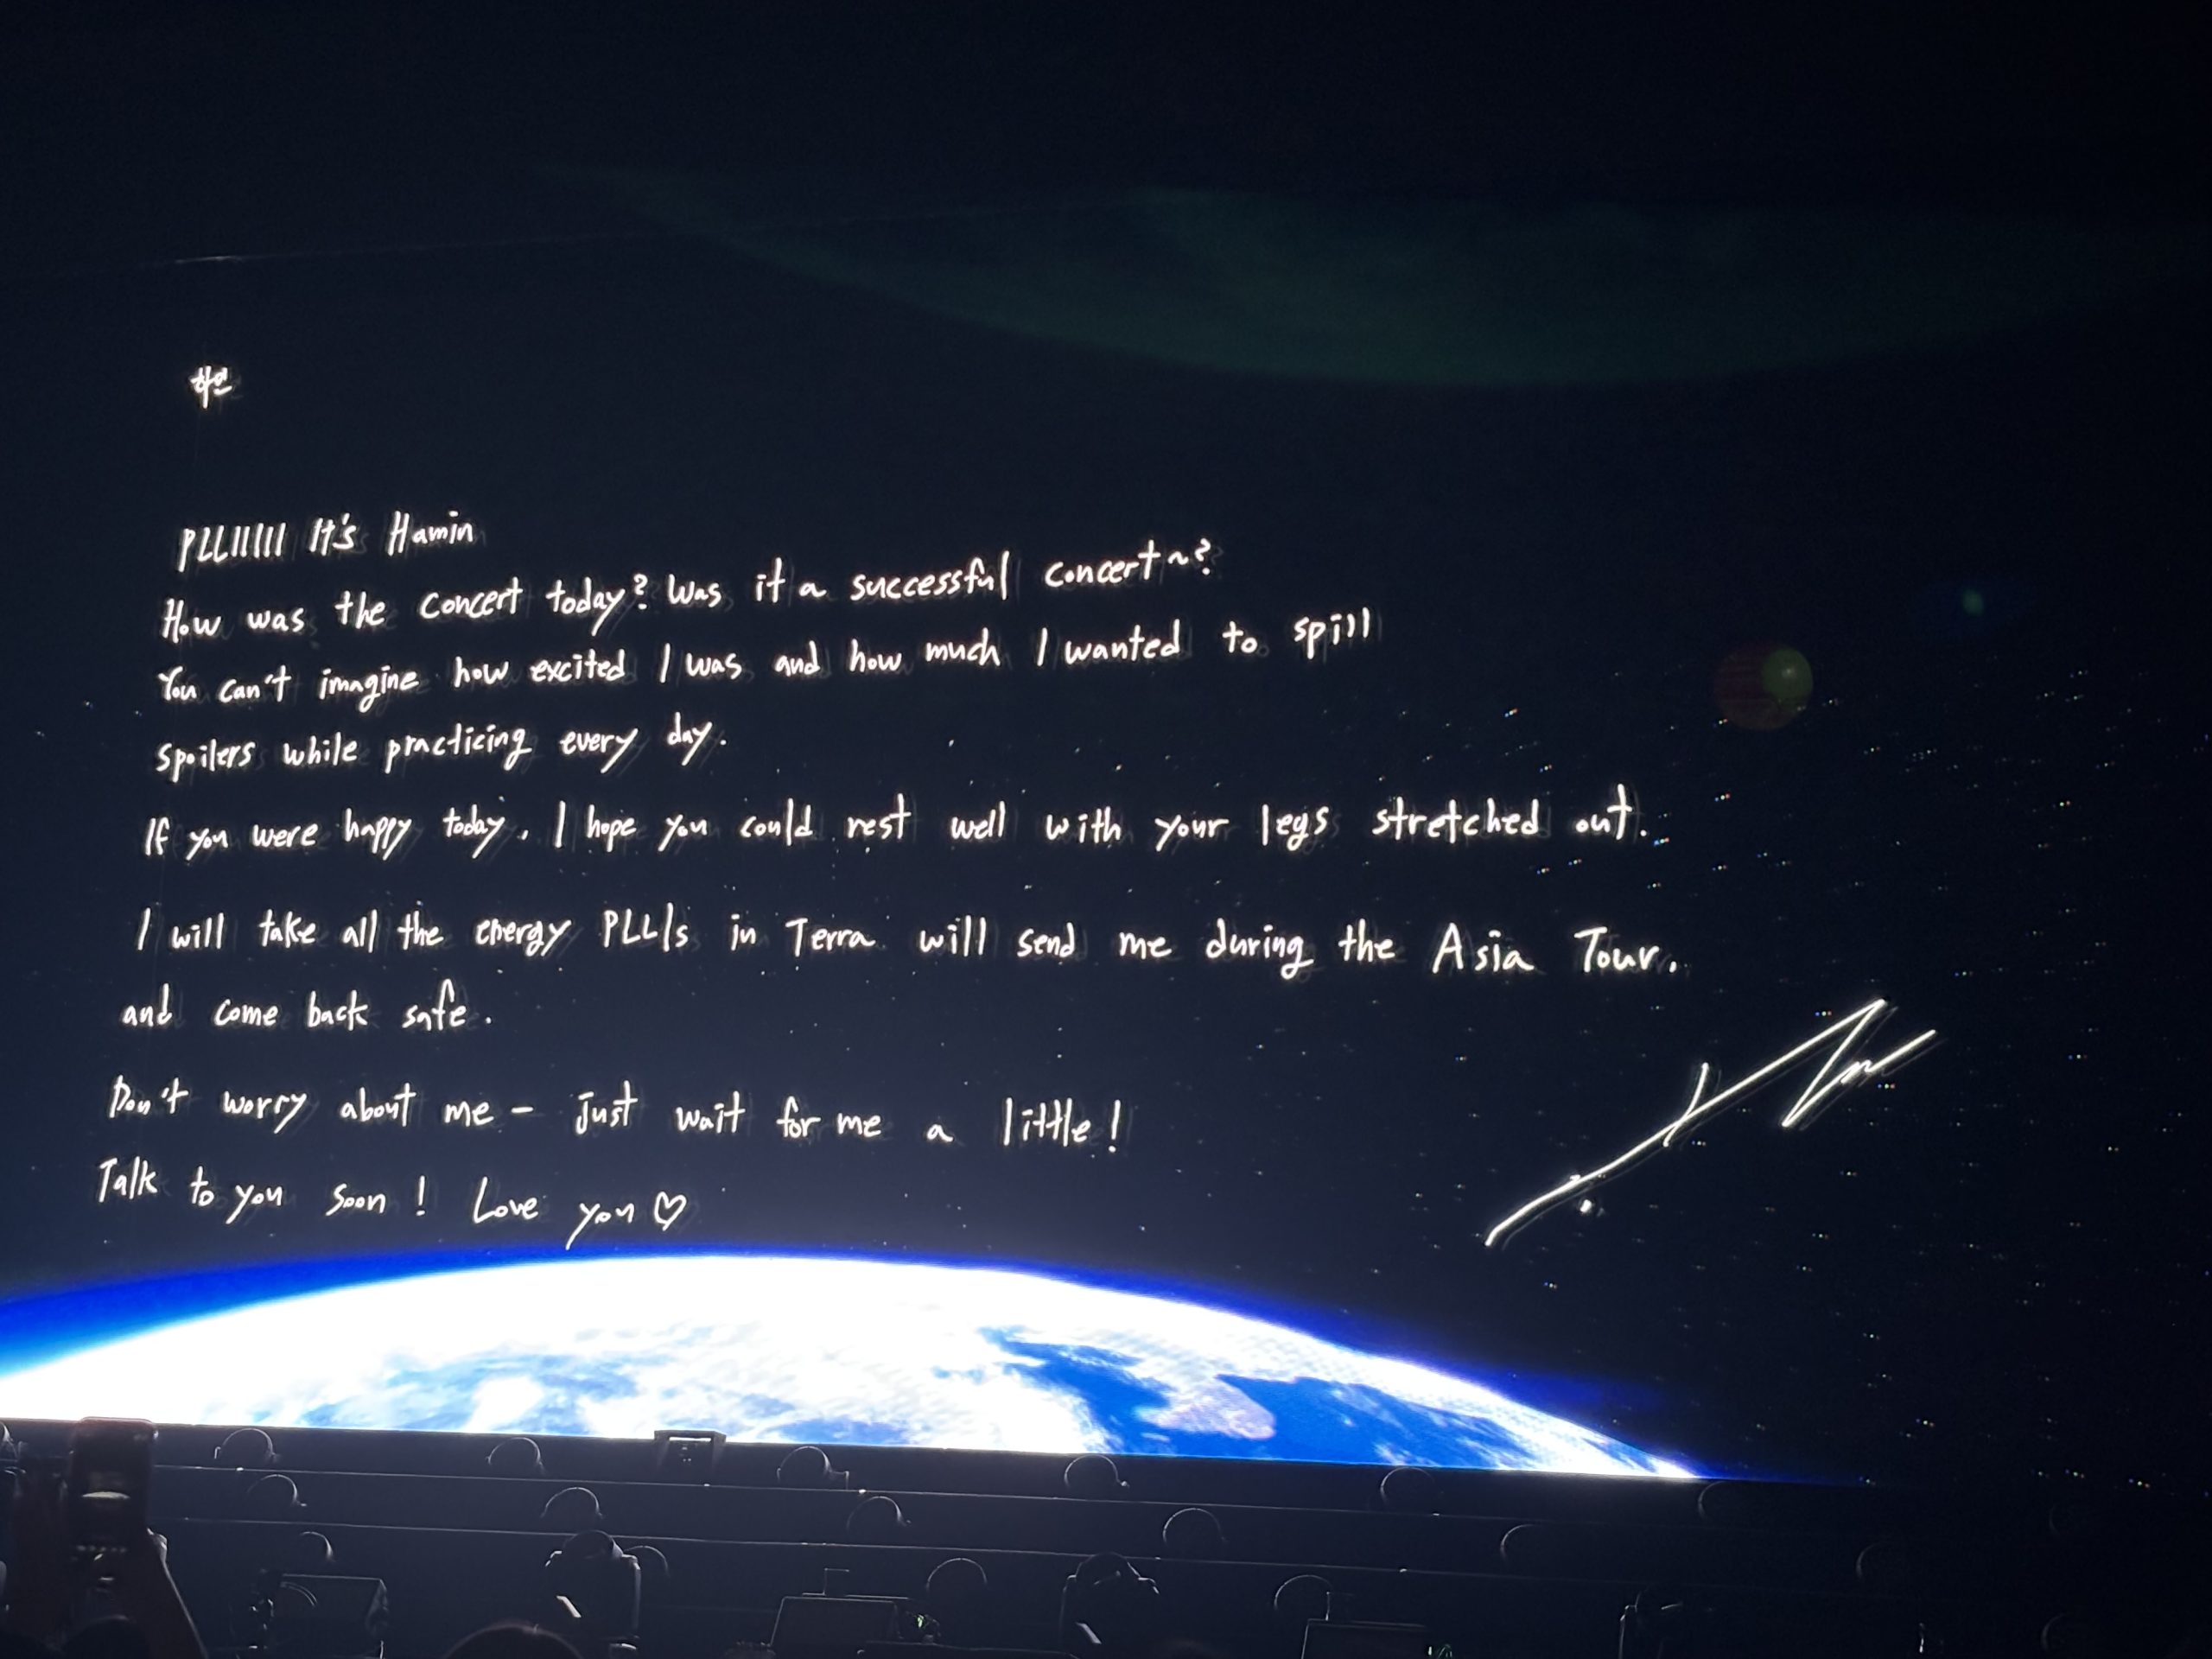 하민
PLLIIIII It's Hamin
How was the concert today? Was it a successful concert~?
You can't imagine how excited I was and how much I wanted to spill
spoilers while practicing every day.
If you were happy today, I hope you could rest well with your legs stretched out.
I will take all the energy PLLIs in Terra will send me during the Asia Tour.
and come back safe.
Don't worry about me - just wait for me a little!
Talk to you soon! Love you♡